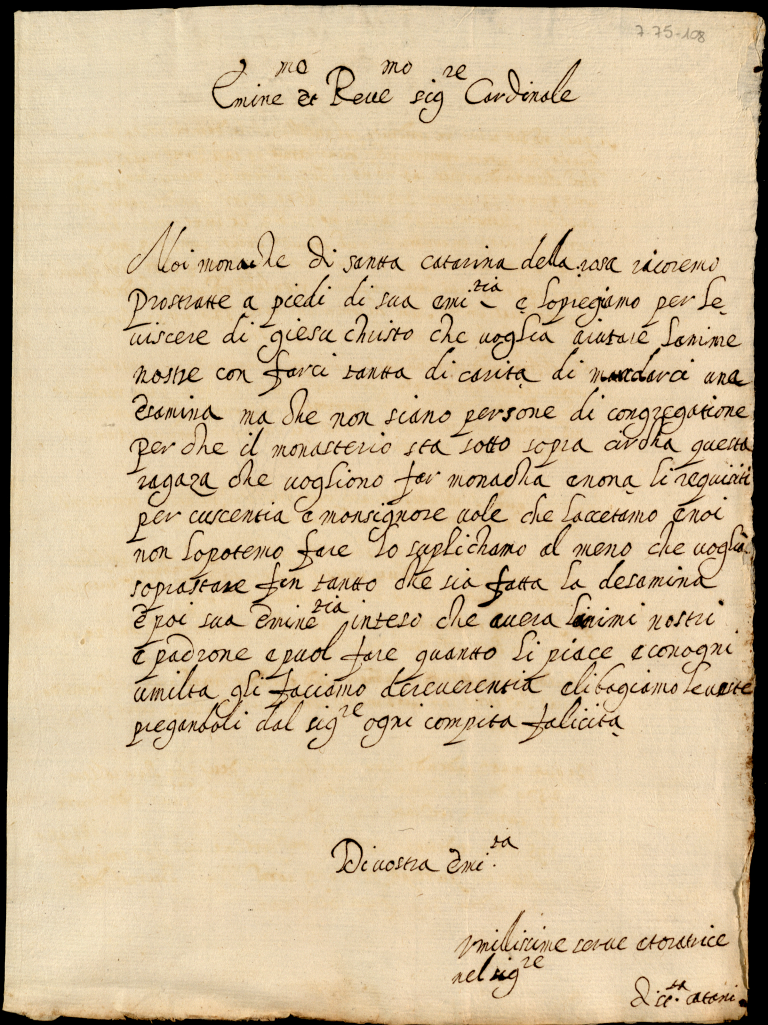 7.75-108
Emine mo et Reue mo sig re Cardinale
Noi monache di santa catarina della rosa ricoremo
prostratte a piedi di sua emi zia e lopregiamo per le
viscere di giesu christo che voglia aiutare lanime
nostre con farci tantta di carita di mandarci una
esamina ma che non siano persone di congregatione
per che il monasterio sta sotto sopra circha questa
ragaza che vogliono far monacha enona li requisiti
per cuscentia e monsignore vole che laccetamo e noi
non lopotemo fare lo suplichamo al meno che voglia
soprastare fin tantto che sia fatta la desamina
e poi sua emine zia inteso che auera lanimi nostri
e padrone epuol fare quantto li piace econogni
umilta gli faciamo dereuerentia elibagiamo leueste
pregandoli dal sig re ogni compita falicita
Di vostra emi. za
vmilissime serue etoratrice
nel sig re